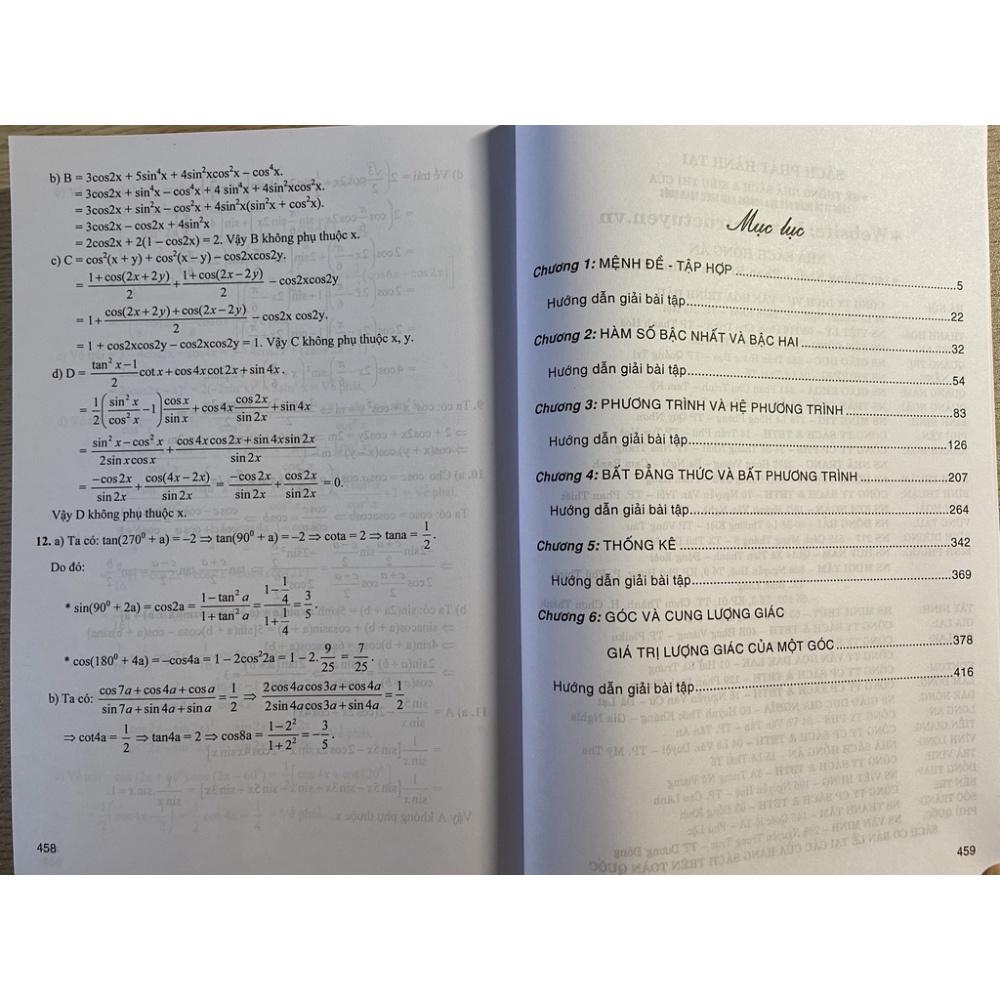 b) B = 3cos2x + 5sin⁴x + 4sin²xcos²x – cos⁴x.
= 3cos2x + sin⁴x – cos⁴x + 4 sin⁴x + 4sin²xcos²x.
= 3cos2x + sin²x – cos²x + 4sin²x(sin²x + cos²x).
= 3cos2x – cos2x + 4sin²x
= 2cos2x + 2(1 – cos2x) = 2. Vậy B không phụ thuộc x.
c) C = cos²(x + y) + cos²(x – y) – cos2xcos2y.
= (1 + cos(2x + 2y))/2 + (1 + cos(2x – 2y))/2 – cos2xcos2y
= 1 + (cos(2x + 2y) + cos(2x – 2y))/2 – cos2x cos2y.
= 1 + cos2xcos2y – cos2xcos2y = 1. Vậy C không phụ thuộc x, y.
d) D = (tan²x – 1)/2 cotx + cos4xcot2x + sin4x.
= 1/2 (sin²x/cos²x – 1) cosx/sinx + cos4x cos2x/sin2x + sin4x
= (sin²x – cos²x)/(2sinxcosx) + (cos4xcos2x + sin4xsin2x)/sin2x
= –cos2x/sin2x + cos(4x – 2x)/sin2x = –cos2x/sin2x + cos2x/sin2x = 0.
Vậy D không phụ thuộc x.
12. a) Ta có: tan(270⁰ + a) = –2 ⇒ tan(90⁰ + a) = –2 ⇒ cota = 2 ⇒ tana = 1/2.
Do đó:
* sin(90⁰ + 2a) = cos2a = (1 – tan²a)/(1 + tan²a) = (1 – 1/4)/(1 + 1/4) = 3/5.
* cos(180⁰ + 4a) = –cos4a = 1 – 2cos²2a = 1 – 2.9/25 = 7/25.
b) Ta có: (cos7a + cos4a + cosa)/(sin7a + sin4a + sina) = 1/2 ⇒ (2cos4acos3a + cos4a)/(2sin4acos3a + sin4a) = 1/2
⇒ cot4a = 1/2 ⇒ tan4a = 2 ⇒ cos8a = (1 – 2²)/(1 + 2²) = –3/5.
458
Mục lục
Chương 1: MỆNH ĐỀ - TẬP HỢP 5
Hướng dẫn giải bài tập 22
Chương 2: HÀM SỐ BẬC NHẤT VÀ BẬC HAI 32
Hướng dẫn giải bài tập 54
Chương 3: PHƯƠNG TRÌNH VÀ HỆ PHƯƠNG TRÌNH 83
Hướng dẫn giải bài tập 126
Chương 4: BẤT ĐẲNG THỨC VÀ BẤT PHƯƠNG TRÌNH 207
Hướng dẫn giải bài tập 264
Chương 5: THỐNG KÊ 342
Hướng dẫn giải bài tập 369
Chương 6: GÓC VÀ CUNG LƯỢNG GIÁC
GIÁ TRỊ LƯỢNG GIÁC CỦA MỘT GÓC 378
Hướng dẫn giải bài tập 416
459